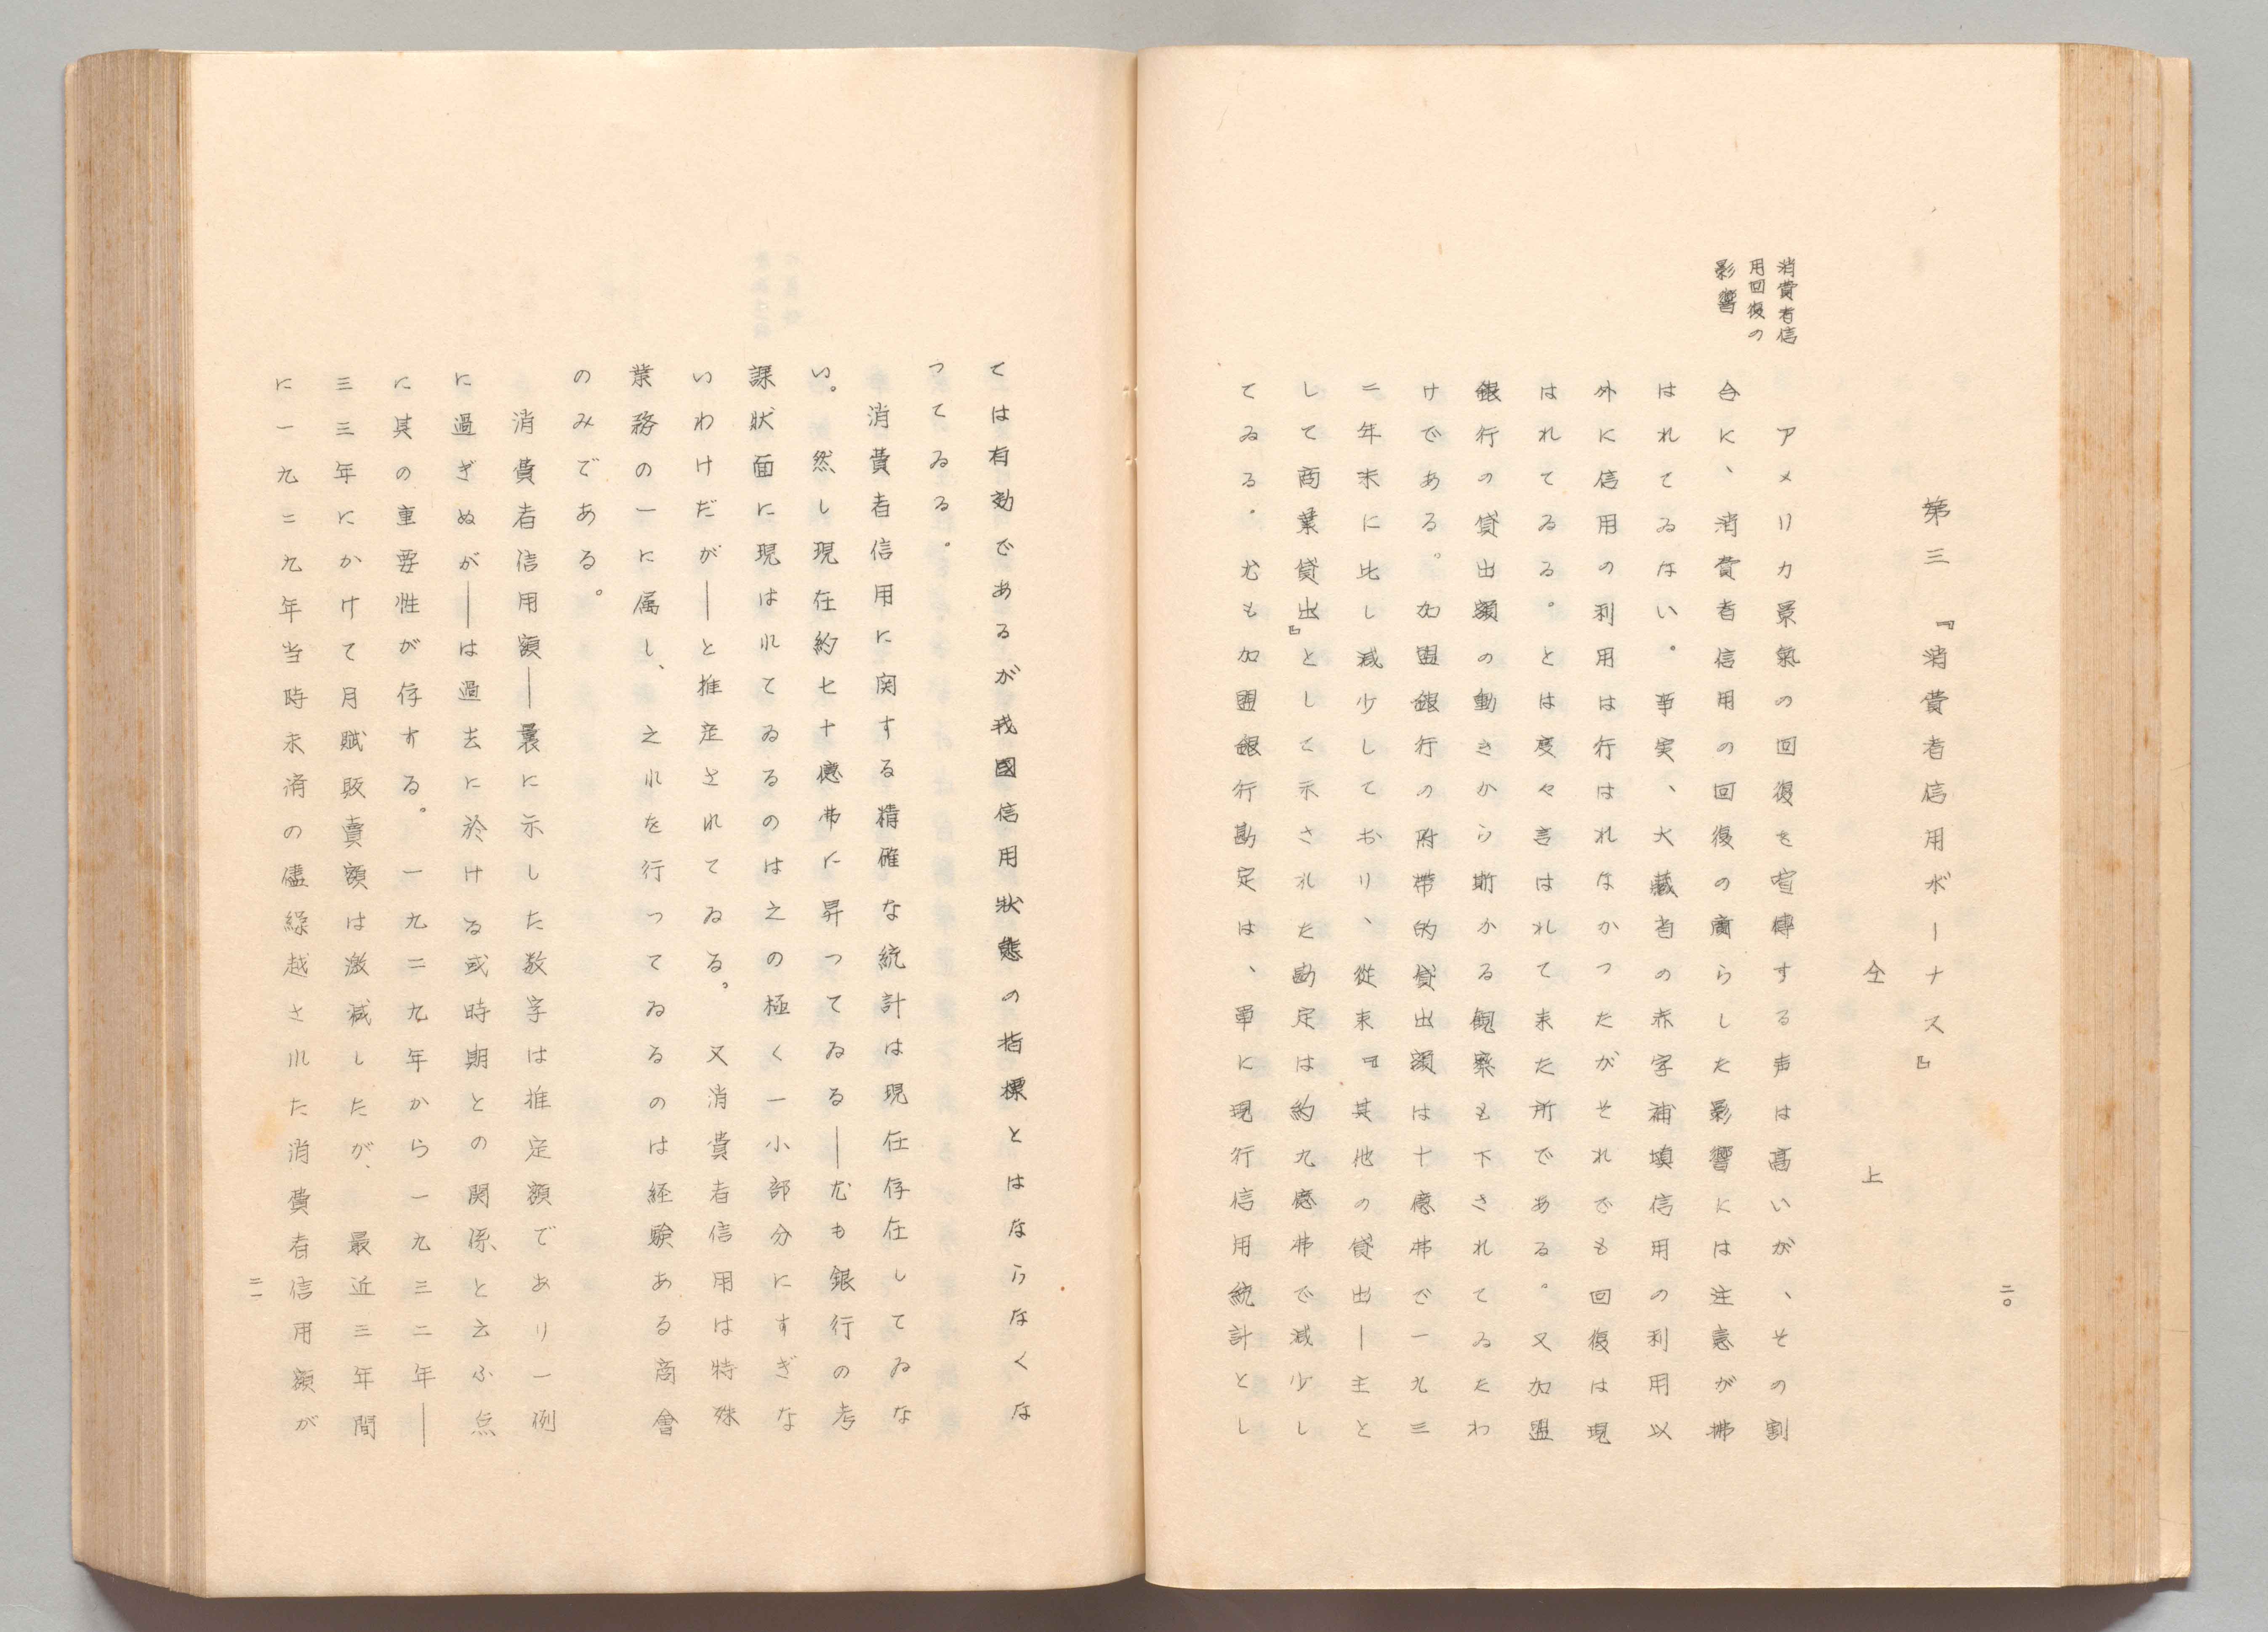 二〇
第三 『消費者信用ボーナス』
仝 上
消費者信
用回復の
影響
アメリカ景氣の回復を喧傳する声は高いが、その割
合に、消費者信用の回復の齎らした影響には注意が拂
はれてゐない。事実、大藏省の赤字補塡信用の利用以
外に信用の利用は行はれなかつたがそれでも回復は現
はれてゐる。とは度々言はれて来た所である。又加盟
銀行の貸出額の動きから斯かる観察も下されてゐたわ
けである。加盟銀行の附帯的貸出額は十億弗で一九三
二年末に比し減少しており、従来『其他の貸出―主と
して商業貸出』として示された勘定は約九億弗で減少し
てゐる．尤も加盟銀行勘定は、単に現行信用統計とし
ては有効であるが我國信用状態の指標とはならなくな
つてゐる。
消費者信用に関する精確な統計は現在存在してゐな
い。然し現在約七十億弗に昇つてゐる―尤も銀行の考
課状面に現はれてゐるのは之の極く一小部分にすぎな
いわけだが―と推定されてゐる。又消費者信用は特殊
業務の一に属し、之れを行つてゐるのは経験ある商會
のみである。
消費者信用額―裏に示した数字は推定額であり一例
に過ぎぬが―は過去に於ける或時期との関係と云ふ点
に其の重要性が存する。一九二九年から一九三二年―
三三年にかけて月賦販賣額は激減したが、最近三年間
に一九二九年当時未済の儘繰越された消費者信用額が
二一